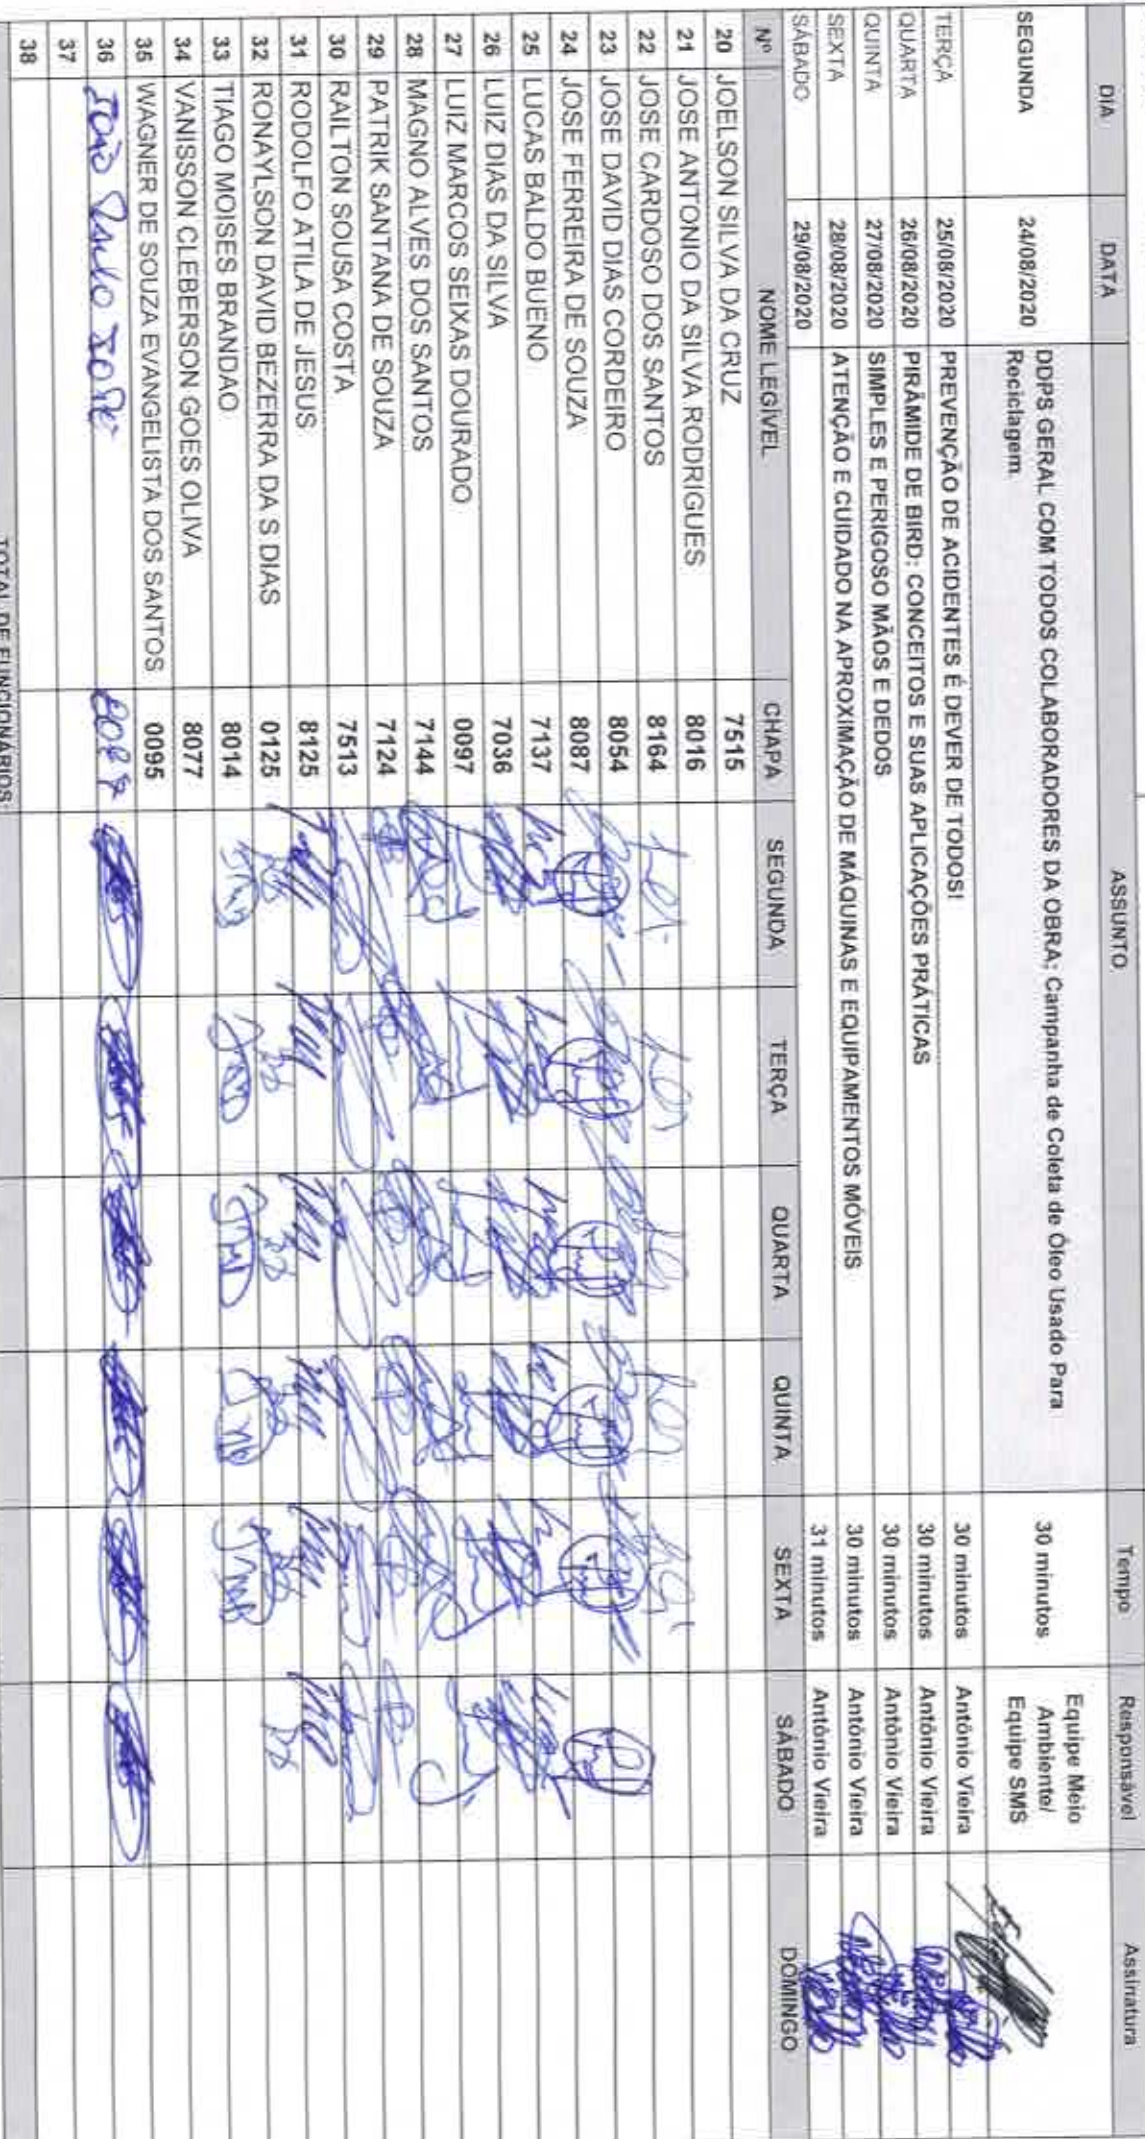 DIA DATA ASSUNTO Tempo Responsável Assinatura
SEGUNDA 24/08/2020 DDPS GERAL COM TODOS COLABORADORES DA OBRA: Campanha de Coleta de Óleo Usado Para Reciclagem. 30 minutos Equipe Meio Ambiente/ Equipe SMS
TERÇA 25/08/2020 PREVENÇÃO DE ACIDENTES É DEVER DE TODOS! 30 minutos Antônio Vieira
QUARTA 26/08/2020 PIRÂMIDE DE BIRD: CONCEITOS E SUAS APLICAÇÕES PRÁTICAS 30 minutos Antônio Vieira
QUINTA 27/08/2020 SIMPLES E PERIGOSO MÃOS E DEDOS 30 minutos Antônio Vieira
SEXTA 28/08/2020 ATENÇÃO E CUIDADO NA APROXIMAÇÃO DE MÁQUINAS E EQUIPAMENTOS MÓVEIS 30 minutos Antônio Vieira
SÁBADO 29/08/2020 31 minutos Antônio Vieira
Nº NOME LEGÍVEL CHAPA SEGUNDA TERÇA QUARTA QUINTA SEXTA SÁBADO DOMINGO
20 JOELSON SILVA DA CRUZ 7515
21 JOSE ANTONIO DA SILVA RODRIGUES 8016
22 JOSE CARDOSO DOS SANTOS 8164
23 JOSE DAVID DIAS CORDEIRO 8054
24 JOSE FERREIRA DE SOUZA 8087
25 LUCAS BALDO BUENO 7137
26 LUIZ DIAS DA SILVA 7036
27 LUIZ MARCOS SEIXAS DOURADO 0097
28 MAGNO ALVES DOS SANTOS 7144
29 PATRIK SANTANA DE SOUZA 7124
30 RAILTON SOUSA COSTA 7513
31 RODOLFO ATILA DE JESUS 8125
32 RONAYLSON DAVID BEZERRA DA S DIAS 0125
33 TIAGO MOISES BRANDAO 8014
34 VANISSON CLEBERSON GOES OLIVA 8077
35 WAGNER DE SOUZA EVANGELISTA DOS SANTOS 0095
36 João Paulo José
37
38
TOTAL DE FUNCIONÁRIOS: